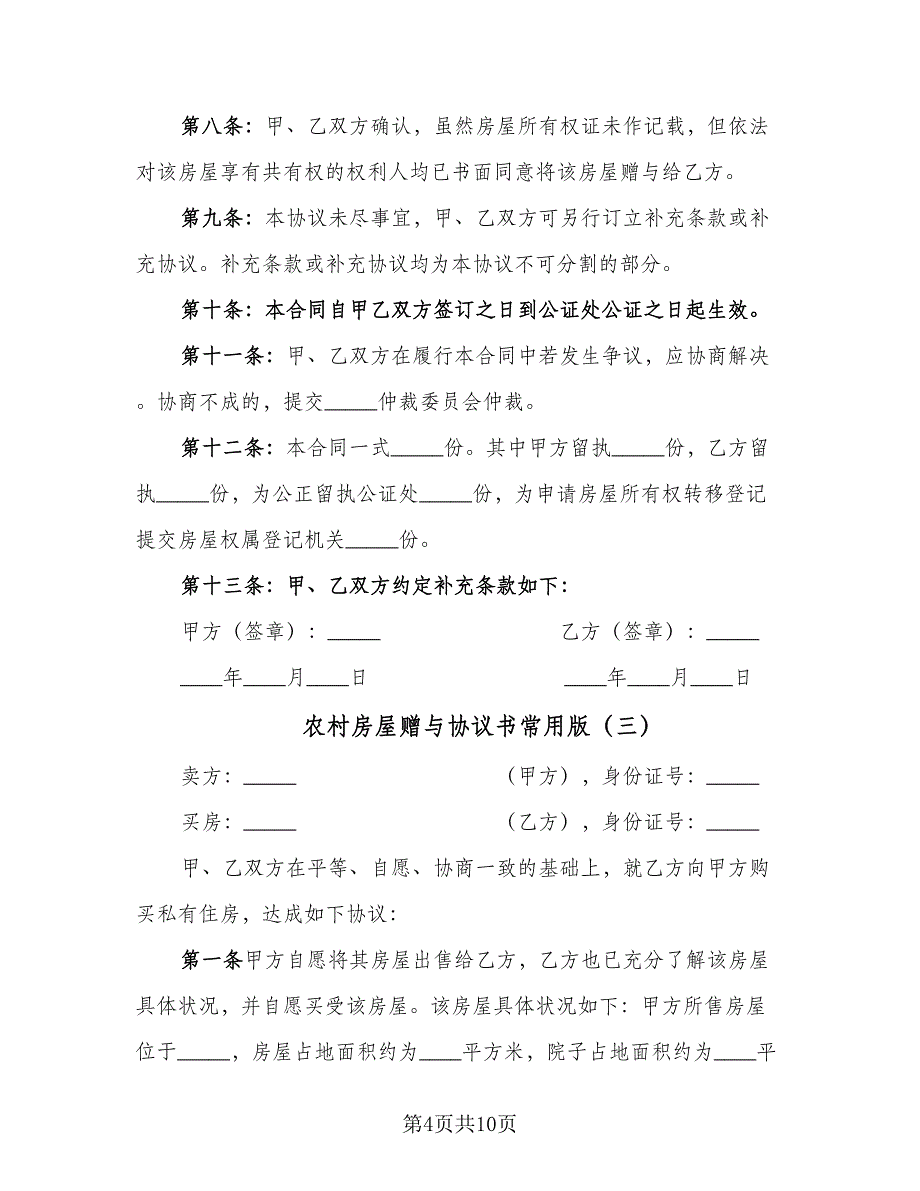 第八条：甲、乙双方确认，虽然房屋所有权证未作记载，但依法
对该房屋享有共有权的权利人均已书面同意将该房屋赠与给乙方。
第九条：本协议未尽事宜，甲、乙双方可另行订立补充条款或补
充协议。补充条款或补充协议均为本协议不可分割的部分。
第十条：本合同自甲乙双方签订之日到公证处公证之日起生效。
第十一条：甲、乙双方在履行本合同中若发生争议，应协商解决
。协商不成的，提交_____仲裁委员会仲裁。
第十二条：本合同一式_____份。其中甲方留执_____份，乙方留
执_____份，为公正留执公证处_____份，为申请房屋所有权转移登记
提交房屋权属登记机关_____份。
第十三条：甲、乙双方约定补充条款如下：
甲方（签章）：_____ 乙方（签章）：_____
____年____月____日 ____年____月____日
农村房屋赠与协议书常用版（三）
卖方：_____ （甲方），身份证号：_____
买房：_____ （乙方），身份证号：_____
甲、乙双方在平等、自愿、协商一致的基础上，就乙方向甲方购
买私有住房，达成如下协议：
第一条甲方自愿将其房屋出售给乙方，乙方也已充分了解该房屋
具体状况，并自愿买受该房屋。该房屋具体状况如下：甲方所售房屋
位于_____，房屋占地面积约为____平方米，院子占地面积约为____平
第4页共10页